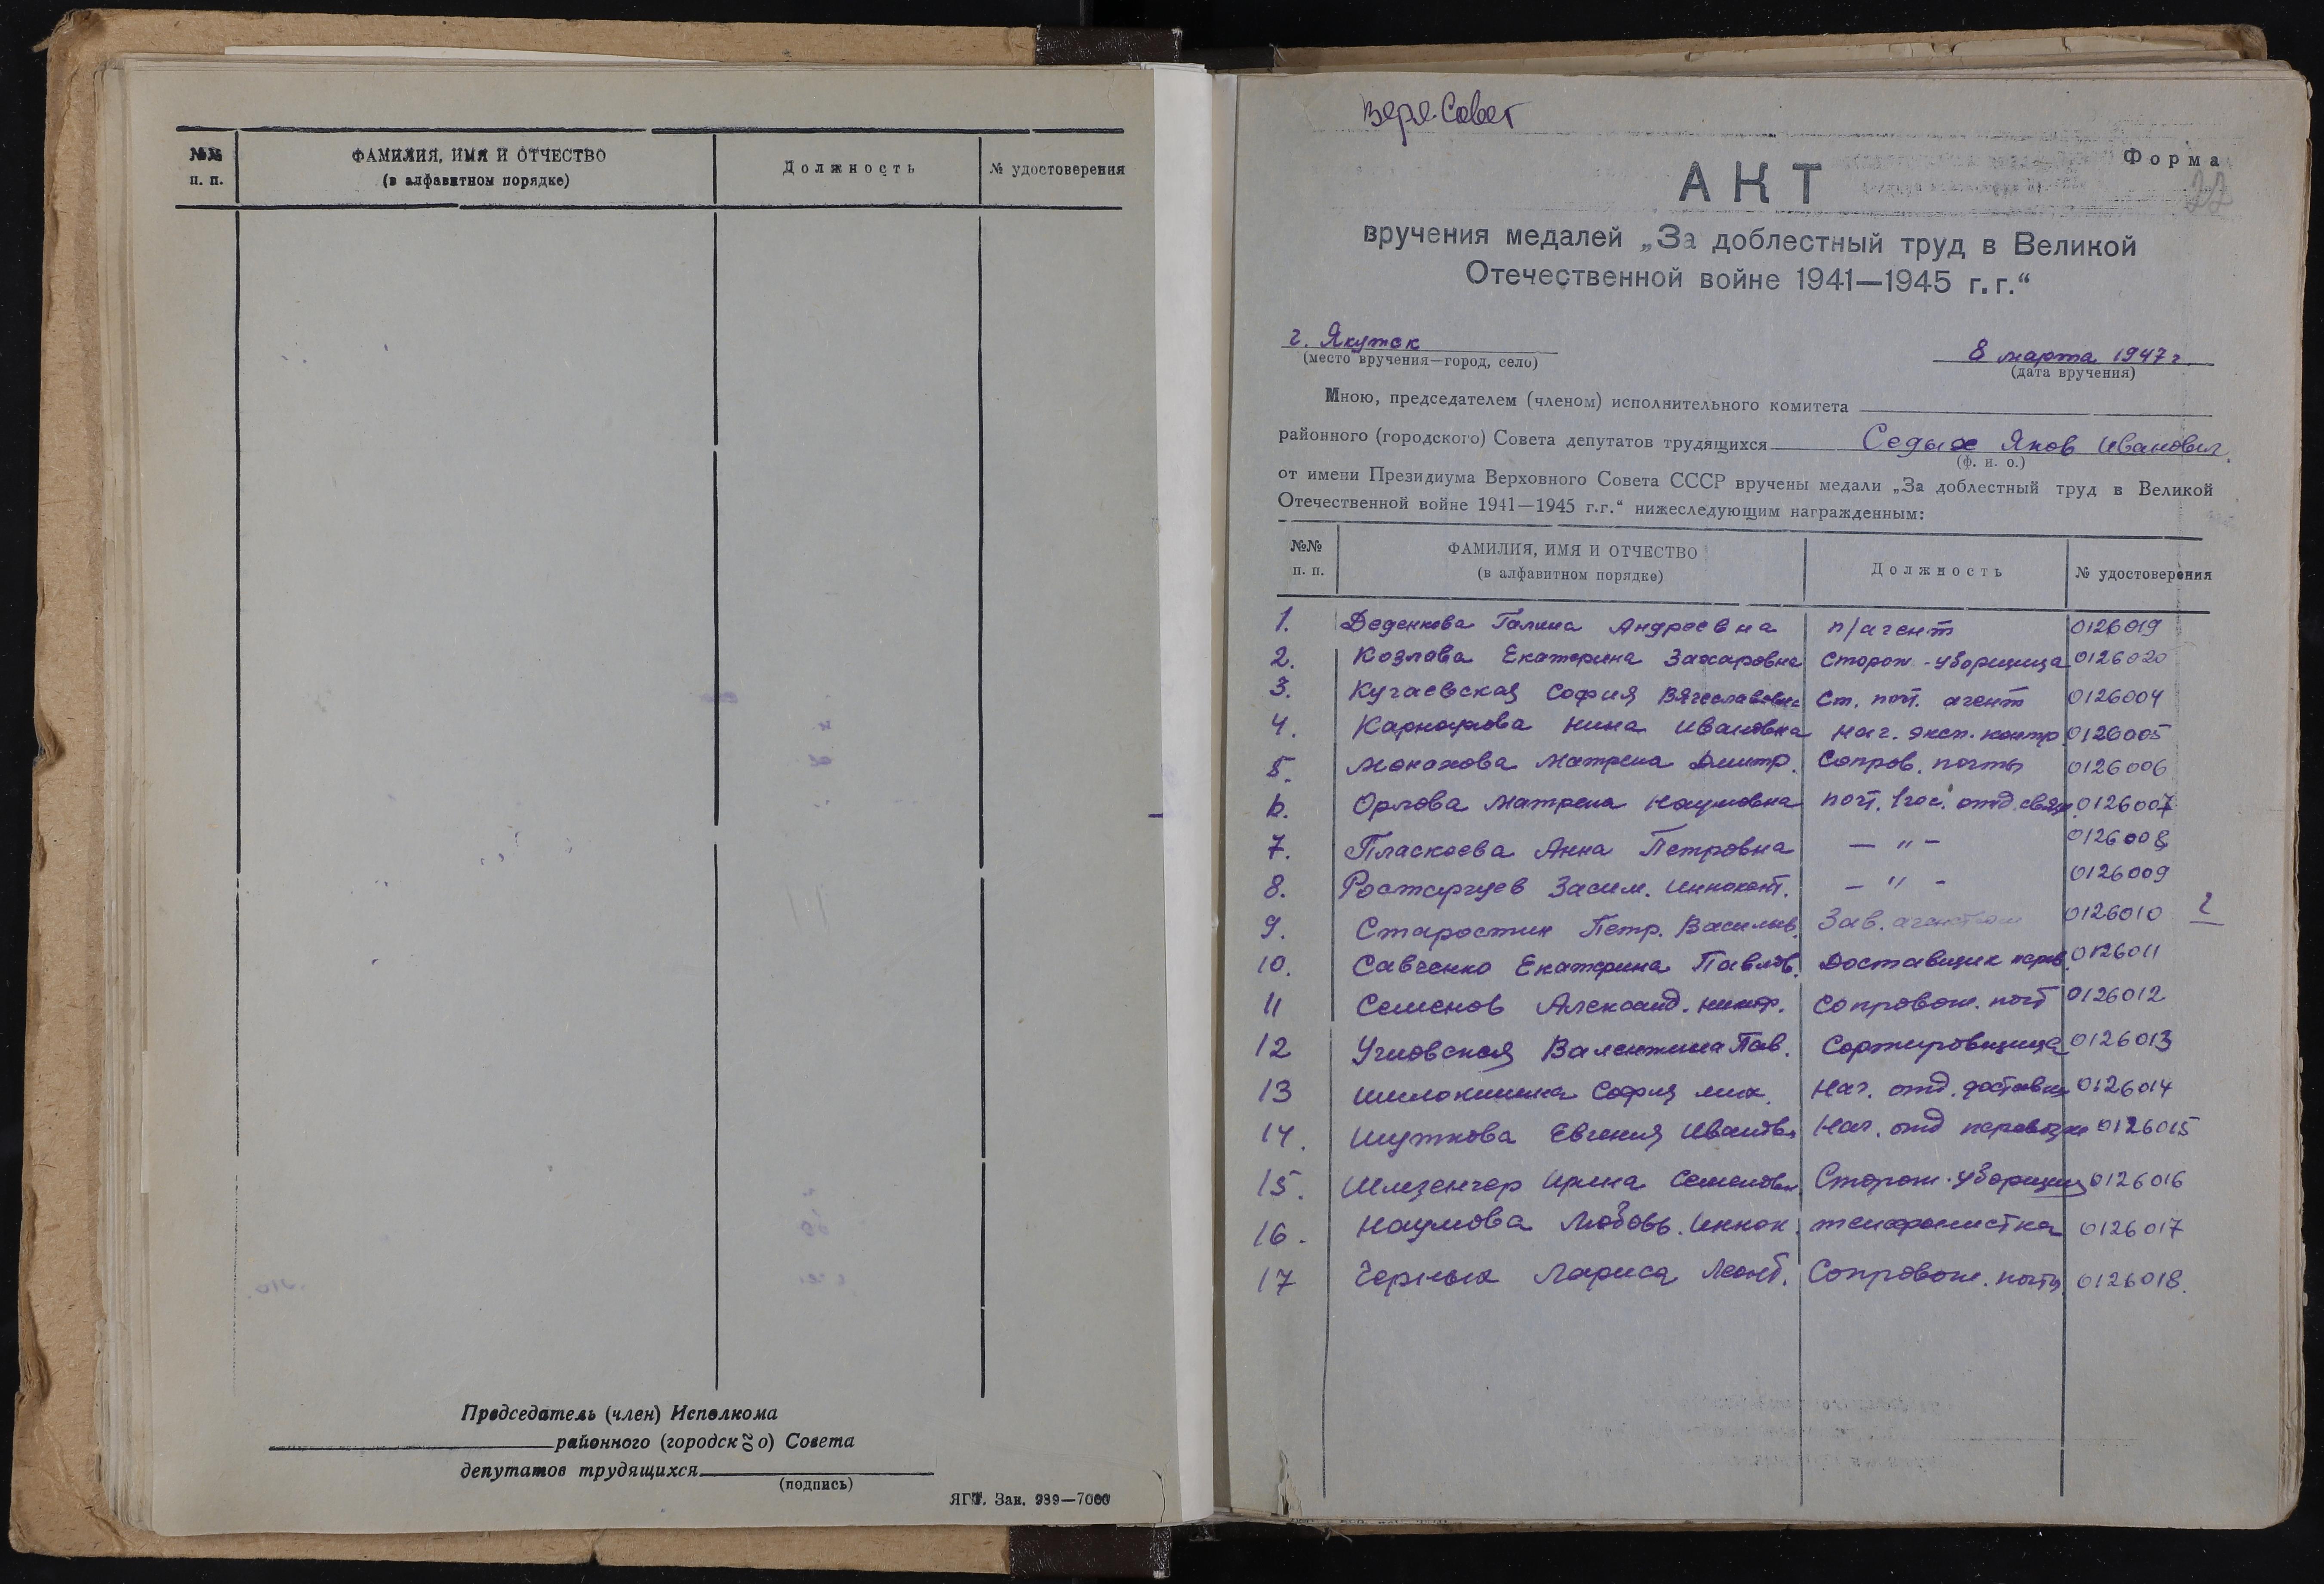 №№
п. п.
ФАМИЛИЯ, ИМЯ И ОТЧЕСТВО
(в алфавитном порядке)
Должность
№ удостоверения
Председатель (член) Исполкома
районного (городского) Совета
депутатов трудящихся
(подпись)
ЯГТ. Зак. 989—7000
Верх. Совет
Форма
27
АКТ
вручения медалей „За доблестный труд в Великой
Отечественной войне 1941—1945 г.г.“
г. Якутск
(место вручения—город, село)
8 марта 1947 г.
(дата вручения)
Мною, председателем (членом) исполнительного комитета
районного (городского) Совета депутатов трудящихся Седых Яков Иванович.
(ф. и. о.)
от имени Президиума Верховного Совета СССР вручены медали „За доблестный труд в Великой
Отечественной войне 1941—1945 г.г.“ нижеследующим награжденным:
№№
п. п.
ФАМИЛИЯ, ИМЯ И ОТЧЕСТВО
(в алфавитном порядке)
Должность
№ удостоверения
1. Деденкова Галина Андреевна п/агент 0126019
2. Козлова Екатерина Захаровна Сторож-уборщица 0126020
3. Кучаевская София Вячеславовна Ст. почт. агент 0126004
4. Карнаухова Нина Ивановна Нач. эксп. контр. 0126005
5. Монахова Матрена Дмитр. Сопров. почты 0126006
6. Орлова Матрена Наумовна 0126007
7. Пласкеева Анна Петровна — " - 0126008
8. Иннокент. - " - 0126009
9. Старостин Петр. Васильев. Зав. агентством 0126010 2
10. Савченко Екатерина Павлов. Доставщик 0126011
11 Семенов Александ. 0126012
12 Валентина Пав. Сортировщица 0126013
13 София Мих. Нач. отд. доставки 0126014
14. Шуткова Евгения Иванов. Нач. отд перевозки 0126015
15. Ирина Семеновн. Сторож-уборщиц 0126016
16. Наумова Любовь. Иннок. телефонистка 0126017
17 Черных Лариса Леонт. Сопровож. почты 0126018.